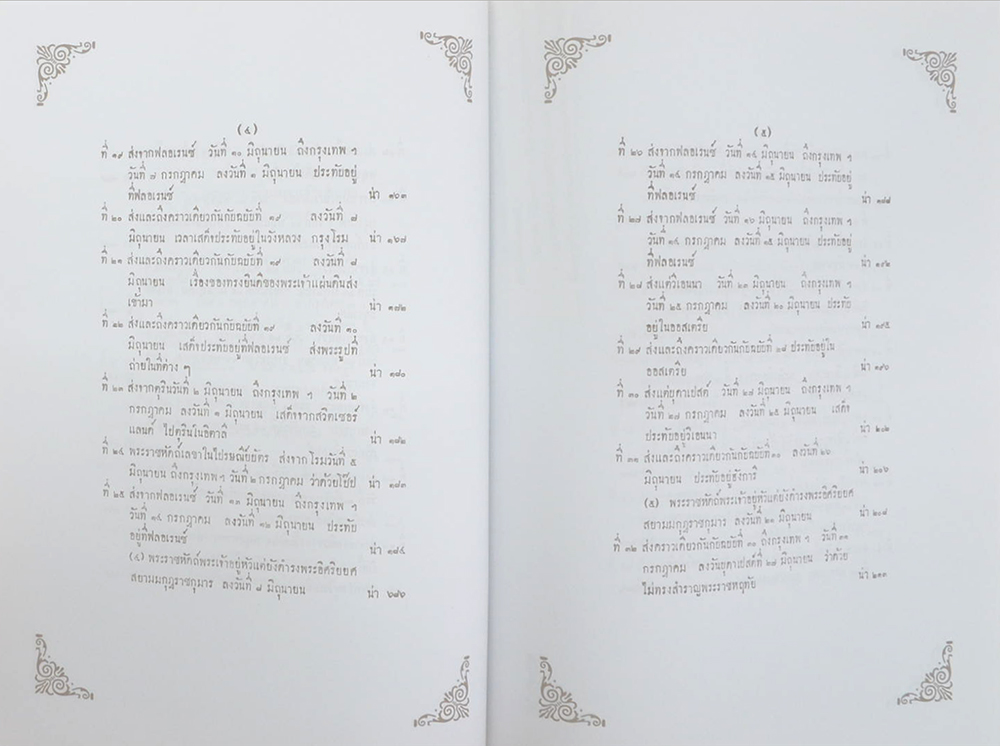 (๔)
ที่ ๑๙ ส่งจากฟลอเรนซ์ วันที่ ๑๐ มิถุนายน ถึงกรุงเทพ ฯ
วันที่ ๗ กรกฎาคม ลงวันที่ ๑ มิถุนายน ประทับอยู่
ที่ฟลอเรนซ์ น่า ๑๖๓
ที่ ๒๐ ส่งและถึงคราวเดียวกันกับฉบับที่ ๑๙ ลงวันที่ ๗
มิถุนายน เวลาเสด็จประทับอยู่ในวังหลวง กรุงโรม น่า ๑๖๗
ที่ ๒๑ ส่งและถึงคราวเดียวกันกับฉบับที่ ๑๙ ลงวันที่ ๘
มิถุนายน เรื่องของทรงยินดีของพระเจ้าแผ่นดินส่ง
เข้ามา น่า ๑๗๒
ที่ ๒๒ ส่งและถึงคราวเดียวกันกับฉบับที่ ๑๙ ลงวันที่ ๑๐
มิถุนายน เสด็จประทับอยู่ที่ฟลอเรนซ์ ส่งพระรูปที่
ถ่ายในที่ต่าง ๆ น่า ๑๘๐
ที่ ๒๓ ส่งจากตุรินวันที่ ๒ มิถุนายน ถึงกรุงเทพ ฯ วันที่ ๒
กรกฎาคม ลงวันที่ ๑ มิถุนายน เสด็จจากสวิตเซอร์
แลนด์ ไปตุรินในอิตาลี น่า ๑๘๒
ที่ ๒๔ พระราชหัตถ์เลขาในไปรษณีย์บัตร ส่งจากโรมวันที่ ๕
มิถุนายน ถึงกรุงเทพฯ วันที่ ๒ กรกฎาคม ว่าด้วยโป๊ป น่า ๑๘๓
ที่ ๒๕ ส่งจากฟลอเรนซ์ วันที่ ๑๓ มิถุนายน ถึงกรุงเทพ ฯ
วันที่ ๑๔ กรกฎาคม ลงวันที่ ๑๒ มิถุนายน ประทับ
อยู่ที่ฟลอเรนซ์ น่า ๑๘๔
(๔) พระราชหัตถ์พระเจ้าอยู่หัวแต่ยังดำรงพระอิศริยยศ
สยามมกุฎราชกุมาร ลงวันที่ ๘ มิถุนายน น่า ๖๗๖
(๕)
ที่ ๒๖ ส่งจากฟลอเรนซ์ วันที่ ๑๔ มิถุนายน ถึงกรุงเทพ ฯ
วันที่ ๑๔ กรกฎาคม ลงวันที่ ๑๕ มิถุนายน ประทับอยู่
ที่ฟลอเรนซ์ น่า ๑๘๘
ที่ ๒๗ ส่งจากฟลอเรนซ์ วันที่ ๑๖ มิถุนายน ถึงกรุงเทพ ฯ
วันที่ ๑๔ กรกฎาคม ลงวันที่ ๑๕ มิถุนายน ประทับอยู่
ที่ฟลอเรนซ์ น่า ๑๙๒
ที่ ๒๘ ส่งแต่วิเอนนา วันที่ ๒๓ มิถุนายน ถึงกรุงเทพ ฯ
วันที่ ๒๕ กรกฎาคม ลงวันที่ ๒๐ มิถุนายน ประทับ
อยู่ในออสเตรีย น่า ๑๙๕
ที่ ๒๙ ส่งและถึงคราวเดียวกันกับฉบับที่ ๒๘ ประทับอยู่ใน
ออสเตรีย น่า ๑๙๖
ที่ ๓๐ ส่งแต่บุดาเปสต์ วันที่ ๒๗ มิถุนายน ถึงกรุงเทพ ฯ
วันที่ ๒๗ กรกฎาคม ลงวันที่ ๒๕ มิถุนายน เสด็จ
ประทับอยู่วิเอนนา น่า ๒๐๒
ที่ ๓๑ ส่งและถึงคราวเดียวกันกับฉบับที่ ๓๐ ลงวันที่ ๒๖
มิถุนายน ประทับอยู่ฮังการี น่า ๒๐๖
(๕) พระราชหัตถ์พระเจ้าอยู่หัวแต่ยังดำรงพระอิศริยยศ
สยามมกุฎราชกุมาร ลงวันที่ ๒๐ มิถุนายน น่า ๒๐๘
ที่ ๓๒ ส่งคราวเดียวกันกับฉบับที่ ๓๑ ถึงกรุงเทพ ฯ วันที่ ๓๑
กรกฎาคม ลงวันบุดาเปสต์ที่ ๒๗ มิถุนายน ว่าด้วย
ไม่ทรงสำราญพระราชหฤทัย น่า ๒๑๓